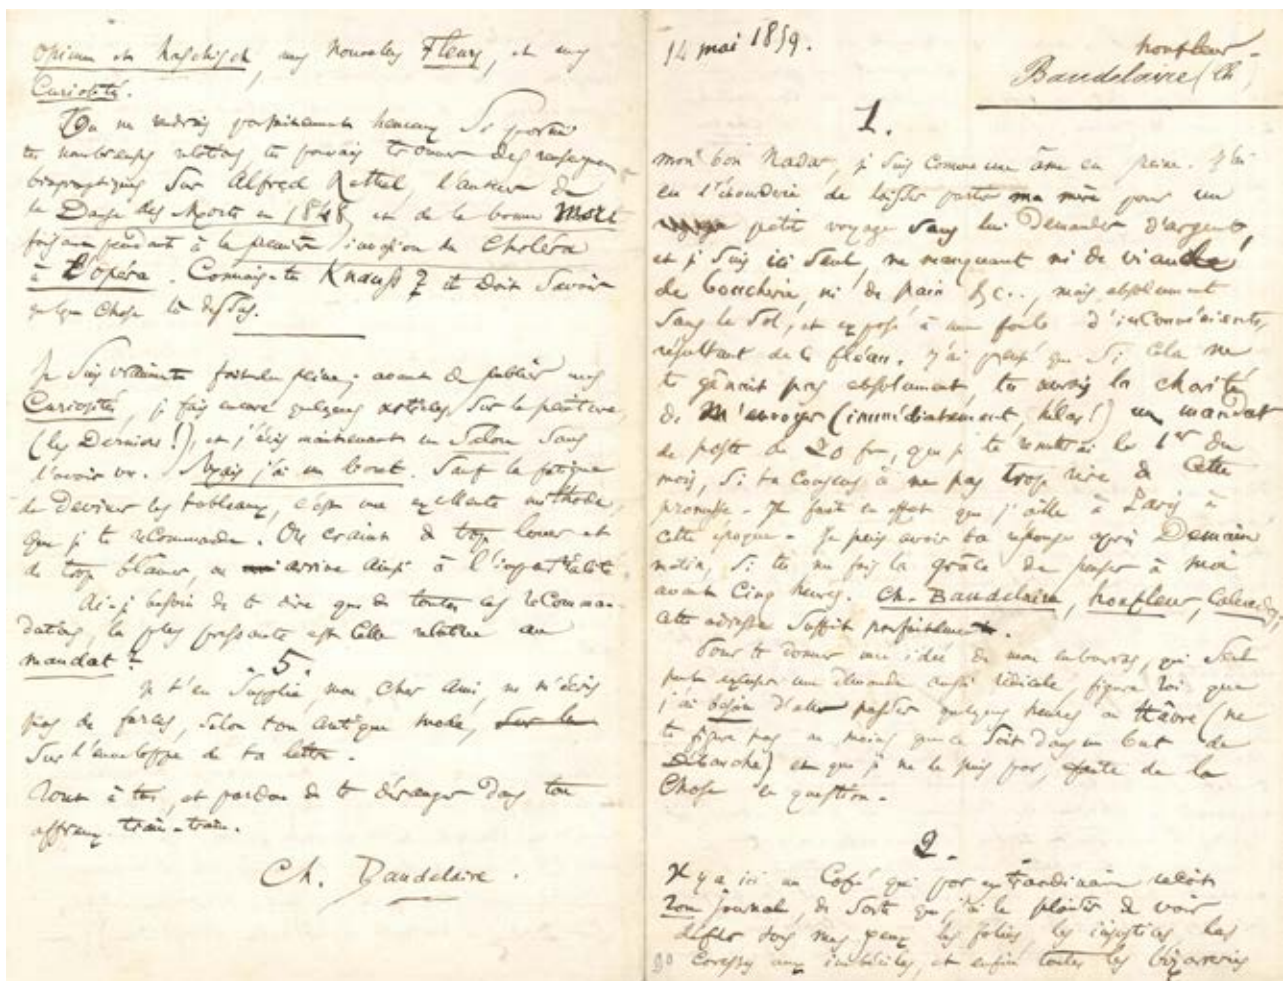 Opium et Haschisch, mes nouvelles Fleurs, et mes
Curiosités.
Tu me rendrais parfaitement heureux si parmi
tes nombreuses relations, tu pouvais trouver des renseignemens
biographiques sur Alfred Rethel, l'auteur de
la Danse des Morts en 1848, et de la bonne Mort
faisant pendant à la première invasion du Choléra
à l'opéra. Connais-tu Knauss ? il doit savoir
quelque chose là dessus.
Je suis vraiment fort en peine ; avant de publier mes
Curiosités, je fais encore quelques articles sur la peinture,
(les derniers !), et j'écris maintenant un Salon sans
l'avoir vu. Mais j'ai un livret. Sauf la fatigue
de deviner les tableaux, c'est une excellente méthode,
que je te recommande. On craint de trop louer et
de trop blâmer, on arrive ainsi à l'impartialité.
Ai-je besoin de te dire que de toutes ces recomman-
dations, la plus pressante est celle relative au
mandat ?
5.
Je t'en supplie, mon cher ami, ne m'écris
pas de farces, selon ton antique mode, sur le
sur l'enveloppe de ta lettre.
Tout à toi, et pardon de te déranger dans ton
affreux train-train.
Ch. Baudelaire.
14 mai 1859.
honfleur
Baudelaire (Ch)
1.
mon bon Nadar, je suis comme une âme en peine. J'ai
eu l'étourderie de laisser partir ma mère pour un
petit voyage sans lui demander d'argent,
et je suis ici seul, ne manquant ni de viande
de boucherie, ni de pain &c.., mais absolument
sans le sol, et exposé à une foule d'inconvénients,
résultant de ce fléau. J'ai pensé que si cela ne
te gênait pas absolument, tu aurais la charité
de m'envoyer (immédiatement, hélas !) un mandat
de poste de 20 fr, que je te remettrai le 1er du
mois, si tu consens à ne pas trop rire de cette
promesse. Il faut en effet que j'aille à Paris à
cette époque. Je puis avoir ta réponse après Demain
matin, si tu me fais la grâce de penser à moi
avant Cinq heures. Ch. Baudelaire, honfleur, Calvados,
cette adresse suffit parfaitement.
Pour te donner une idée de mon embarras, qui seul
peut excuser une demande aussi ridicule, figure toi que
j'ai besoin d'aller passer quelques heures au Hâvre (ne
te figure pas au moins que ce soit dans un but de
Débauche) et que je ne le puis pas, faute de la
Chose en question.
2.
Il y a ici un Café qui par extraordinaire reçoit
Ton journal, de sorte que j'ai le plaisir de voir
défiler sous mes yeux les folies, les injustices, les
caresses aux imbéciles, et enfin toutes les bizarreries